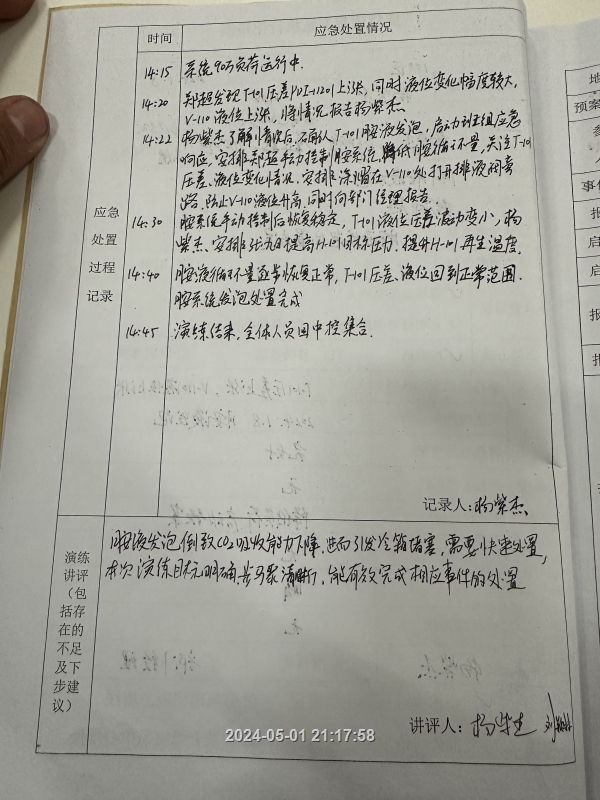 时间
应急处置情况
14:15 系统90%负荷运行中.
14:20 郑超发现T-101压差PDI-11201上涨,同时液位变化幅度较大,
V-110液位上涨,将情况报告杨紫杰.
14:22 杨紫杰了解情况后,确认T-101胺液发泡,启动班组应急
响应,安排郑超手动控制胺系统,降低胺循环量,关注T-101
压差、液位变化情况,安排涂熠在V-110处打开排液阀套
防止V-110液位升高,同时向部门经理报告.
14:30 胺系统手动控制后恢复稳定,T-101液位压差波动变小,杨
紫杰安排提高H-101目标压力,提升H-101再生温度.
14:40 胺液循环量逐步恢复正常,T-101压差、液位回到正常范围.
胺系统发泡处置完成
14:45 演练结束,全体人员回中控集合.
应急
处置
过程
记录
记录人:杨紫杰.
演练
讲评
(包
括存
在的
不足
及下
步建
议)
胺液发泡倒致CO2吸收能力下降,进而引发冷箱堵塞,需要快速处置,
本次演练目标明确,步骤清晰,能有效完成相应事件的处置
讲评人:
2024-05-01 21:17:58
预案
事件
启
启
报
报